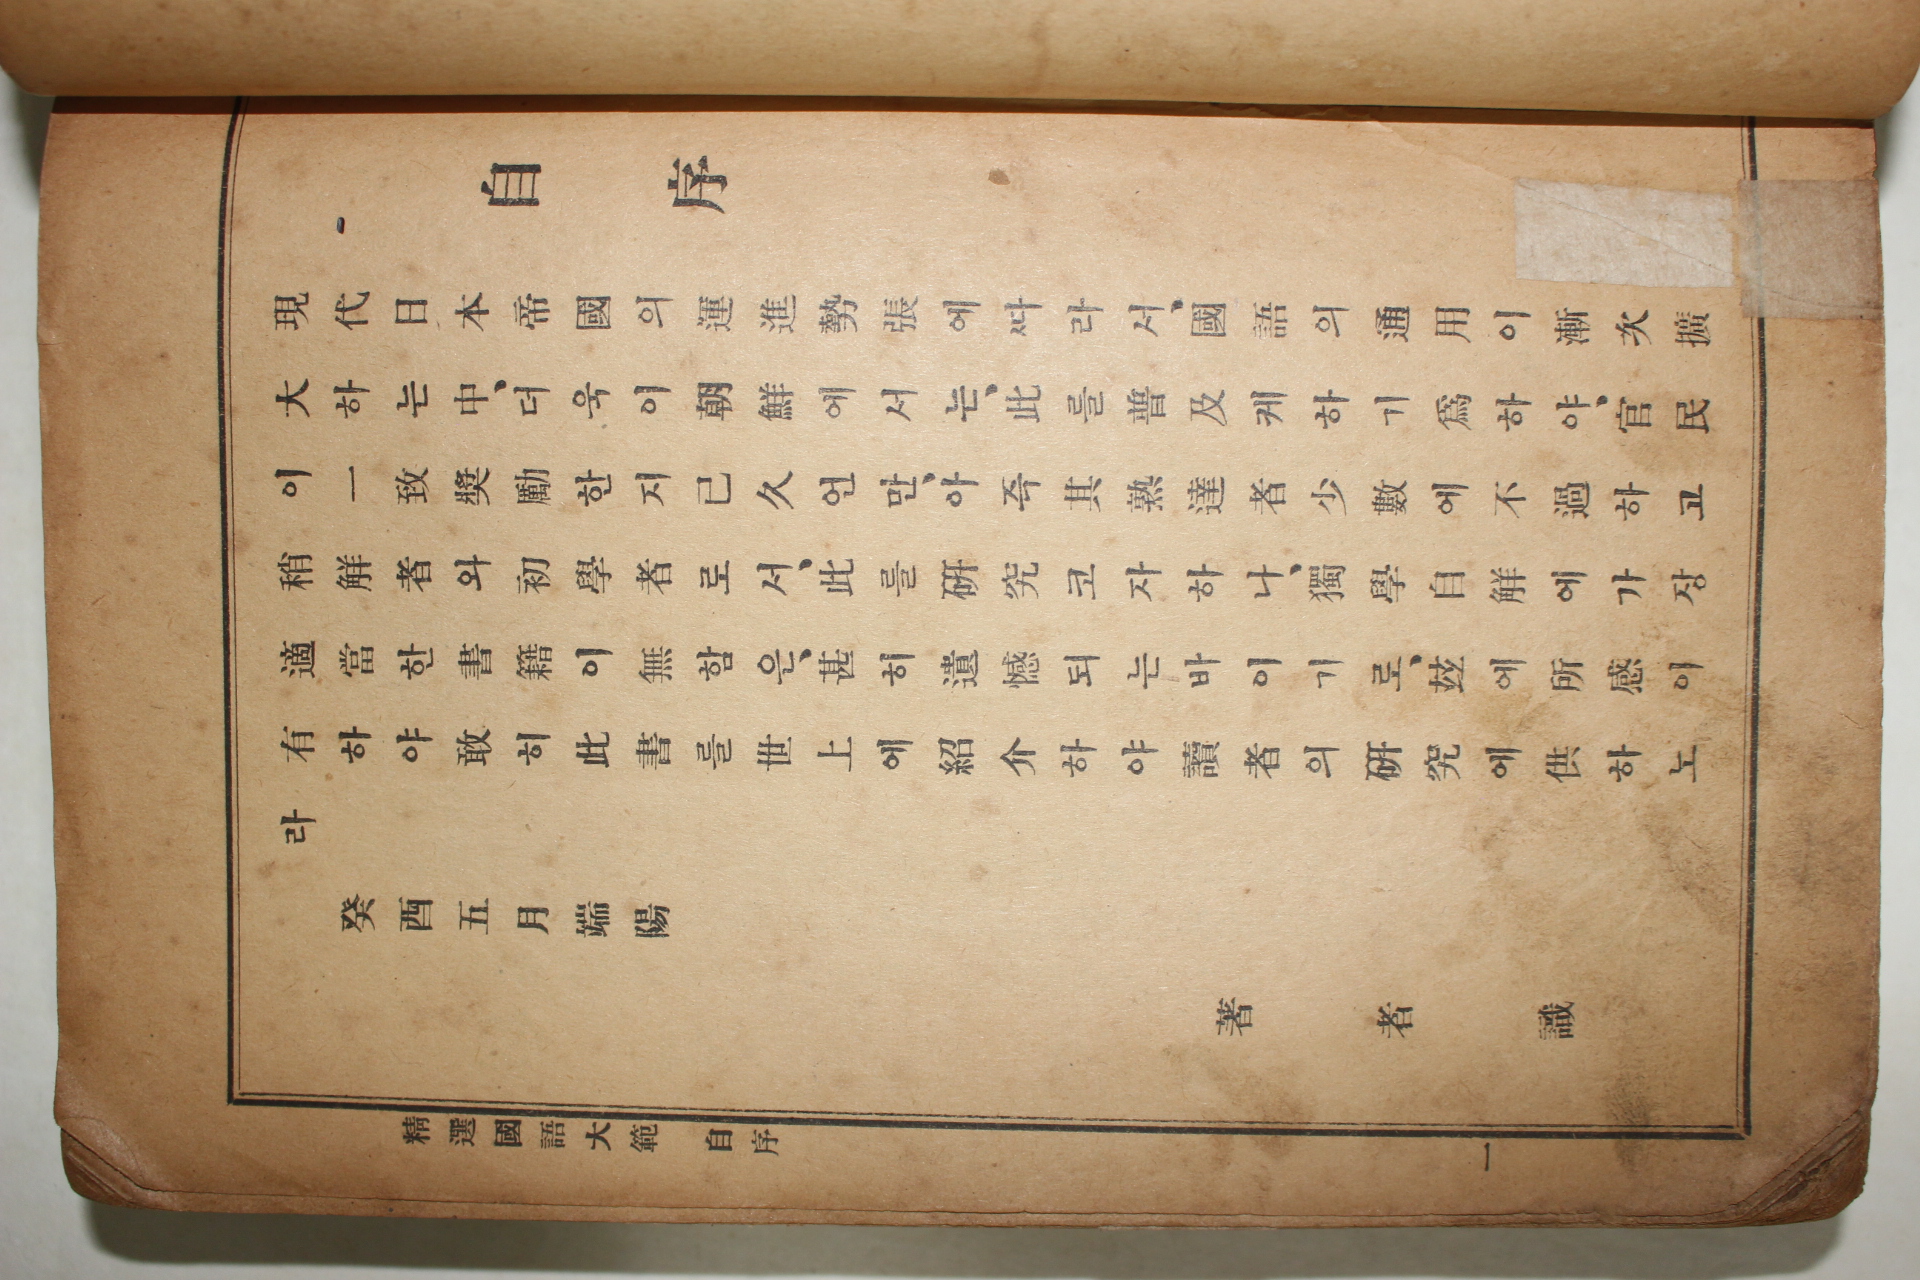 自序
現代日本帝國의運進勢張에ᄯᅡ라서、國語의通用이漸次擴
大하는中、더욱이朝鮮에서는、此를普及케하기爲하야、官民
이一致奬勵한지已久언만、아즉其熟達者少數에不過하고
稍解者와初學者로서、此를硏究코자하나、獨學自解에가장
適當한書籍이無함은、甚히遺憾되는바이기로、玆에所感이
有하야敢히此書를世上에紹介하야讀者의硏究에供하노
라
癸酉五月端陽
著者識
精選國語大範 自序
一